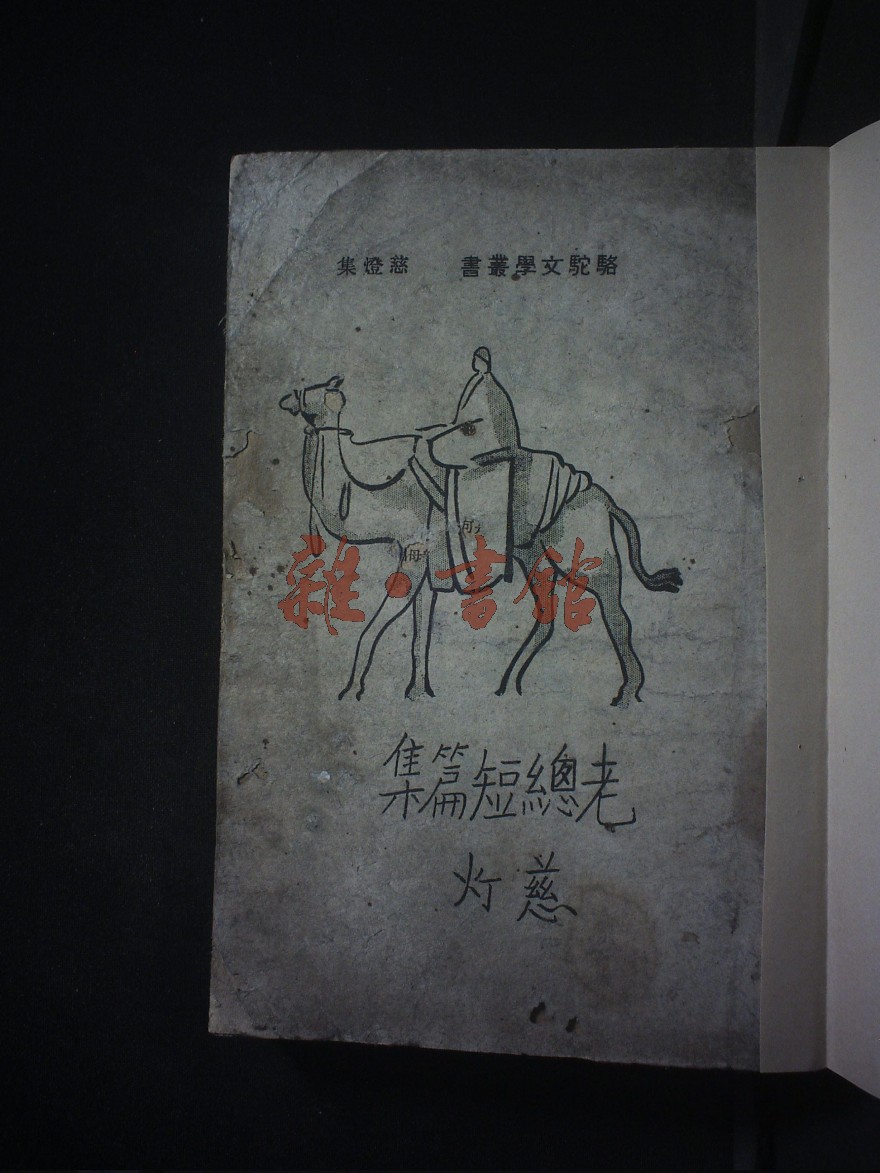 駱駝文學叢書　慈燈集
雜·書館
老總短篇集
慈灯